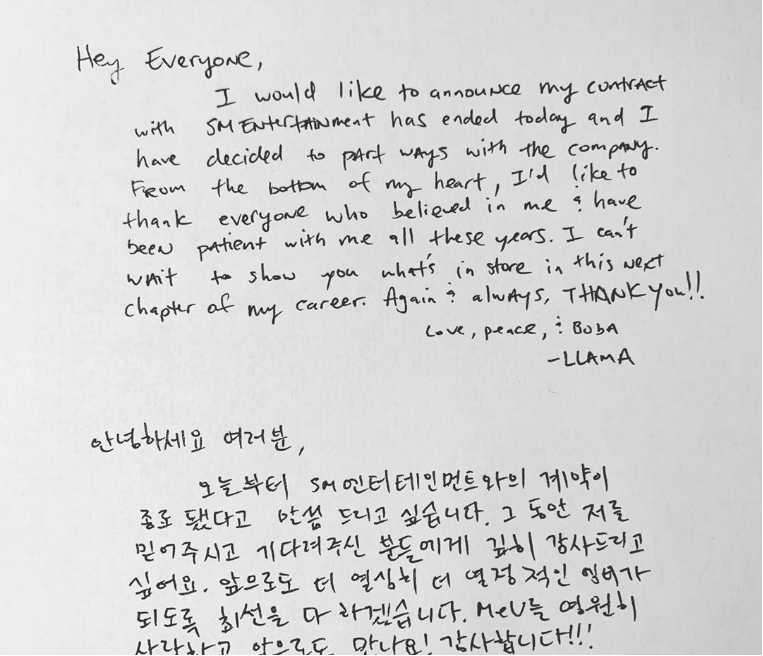 Hey Everyone,
I would like to announce my contract
with SM Entertainment has ended today and I
have decided to part ways with the company.
From the bottom of my heart, I'd like to
thank everyone who believed in me & have
been patient with me all these years. I can't
wait to show you what's in store in this next
chapter of my career. Again & always, THANK you!!
Love, peace, & Boba
-LLAMA
안녕하세요 여러분,
오늘부터 SM엔터테인먼트와의 계약이
종료 됐다고 말씀 드리고 싶습니다. 그 동안 저를
믿어주시고 기다려주신 분들에게 깊히 감사드리고
싶어요. 앞으로도 더 열심히 더 열정적인 엠버가
되도록 최선을 다 하겠습니다. MeU를 영원히
사랑하고 앞으로도 만나요! 감사합니다!!!